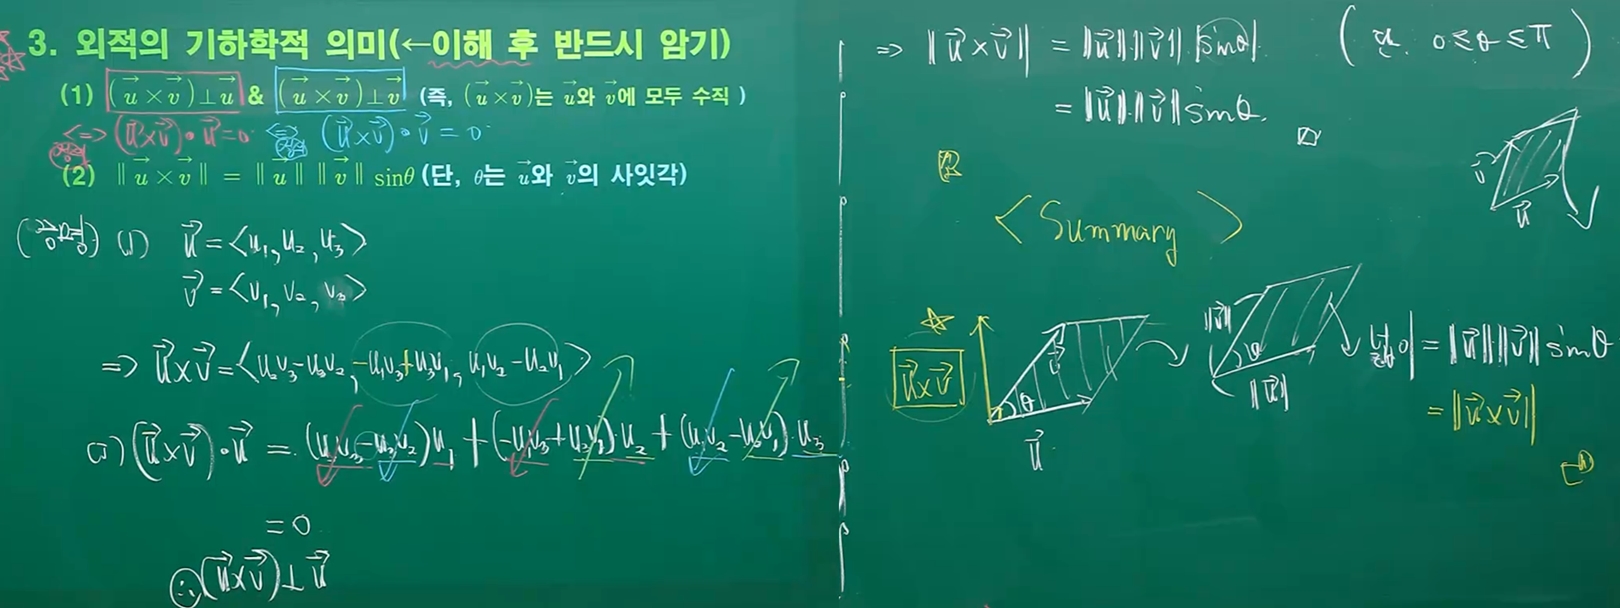 3. 외적의 기하학적 의미(←이해 후 반드시 암기)
(1) (u⃗ × v⃗) ⊥ u⃗ & (u⃗ × v⃗) ⊥ v⃗ (즉, (u⃗ × v⃗)는 u⃗와 v⃗에 모두 수직 )
<=> (u⃗×v⃗)•u⃗=0 <=> (u⃗×v⃗)•v⃗=0
(2) ‖u⃗ × v⃗‖ = ‖u⃗‖ ‖v⃗‖ sinθ (단, θ는 u⃗와 v⃗의 사잇각)
(1) u⃗=<u₁, u₂, u₃>
v⃗=<v₁, v₂, v₃>
=> u⃗×v⃗=<u₂v₃-u₃v₂, -u₁v₃+u₃v₁, u₁v₂-u₂v₁>
(u⃗×v⃗)•u⃗ = (u₂v₃-u₃v₂)u₁+(-u₁v₃+u₃v₁)•u₂+(u₁v₂-u₂v₁)•u₃
=0
∴(u⃗×v⃗)⊥u⃗
=> ‖u⃗×v⃗‖ = ‖u⃗‖‖v⃗‖|sinθ| ( 0≤θ≤π )
=‖u⃗‖‖v⃗‖sinθ.
v⃗
u⃗
<Summary>
u⃗×v⃗
v⃗
θ
u⃗
‖v⃗‖
θ
‖u⃗‖
넓이=‖u⃗‖‖v⃗‖sinθ
=‖u⃗×v⃗‖